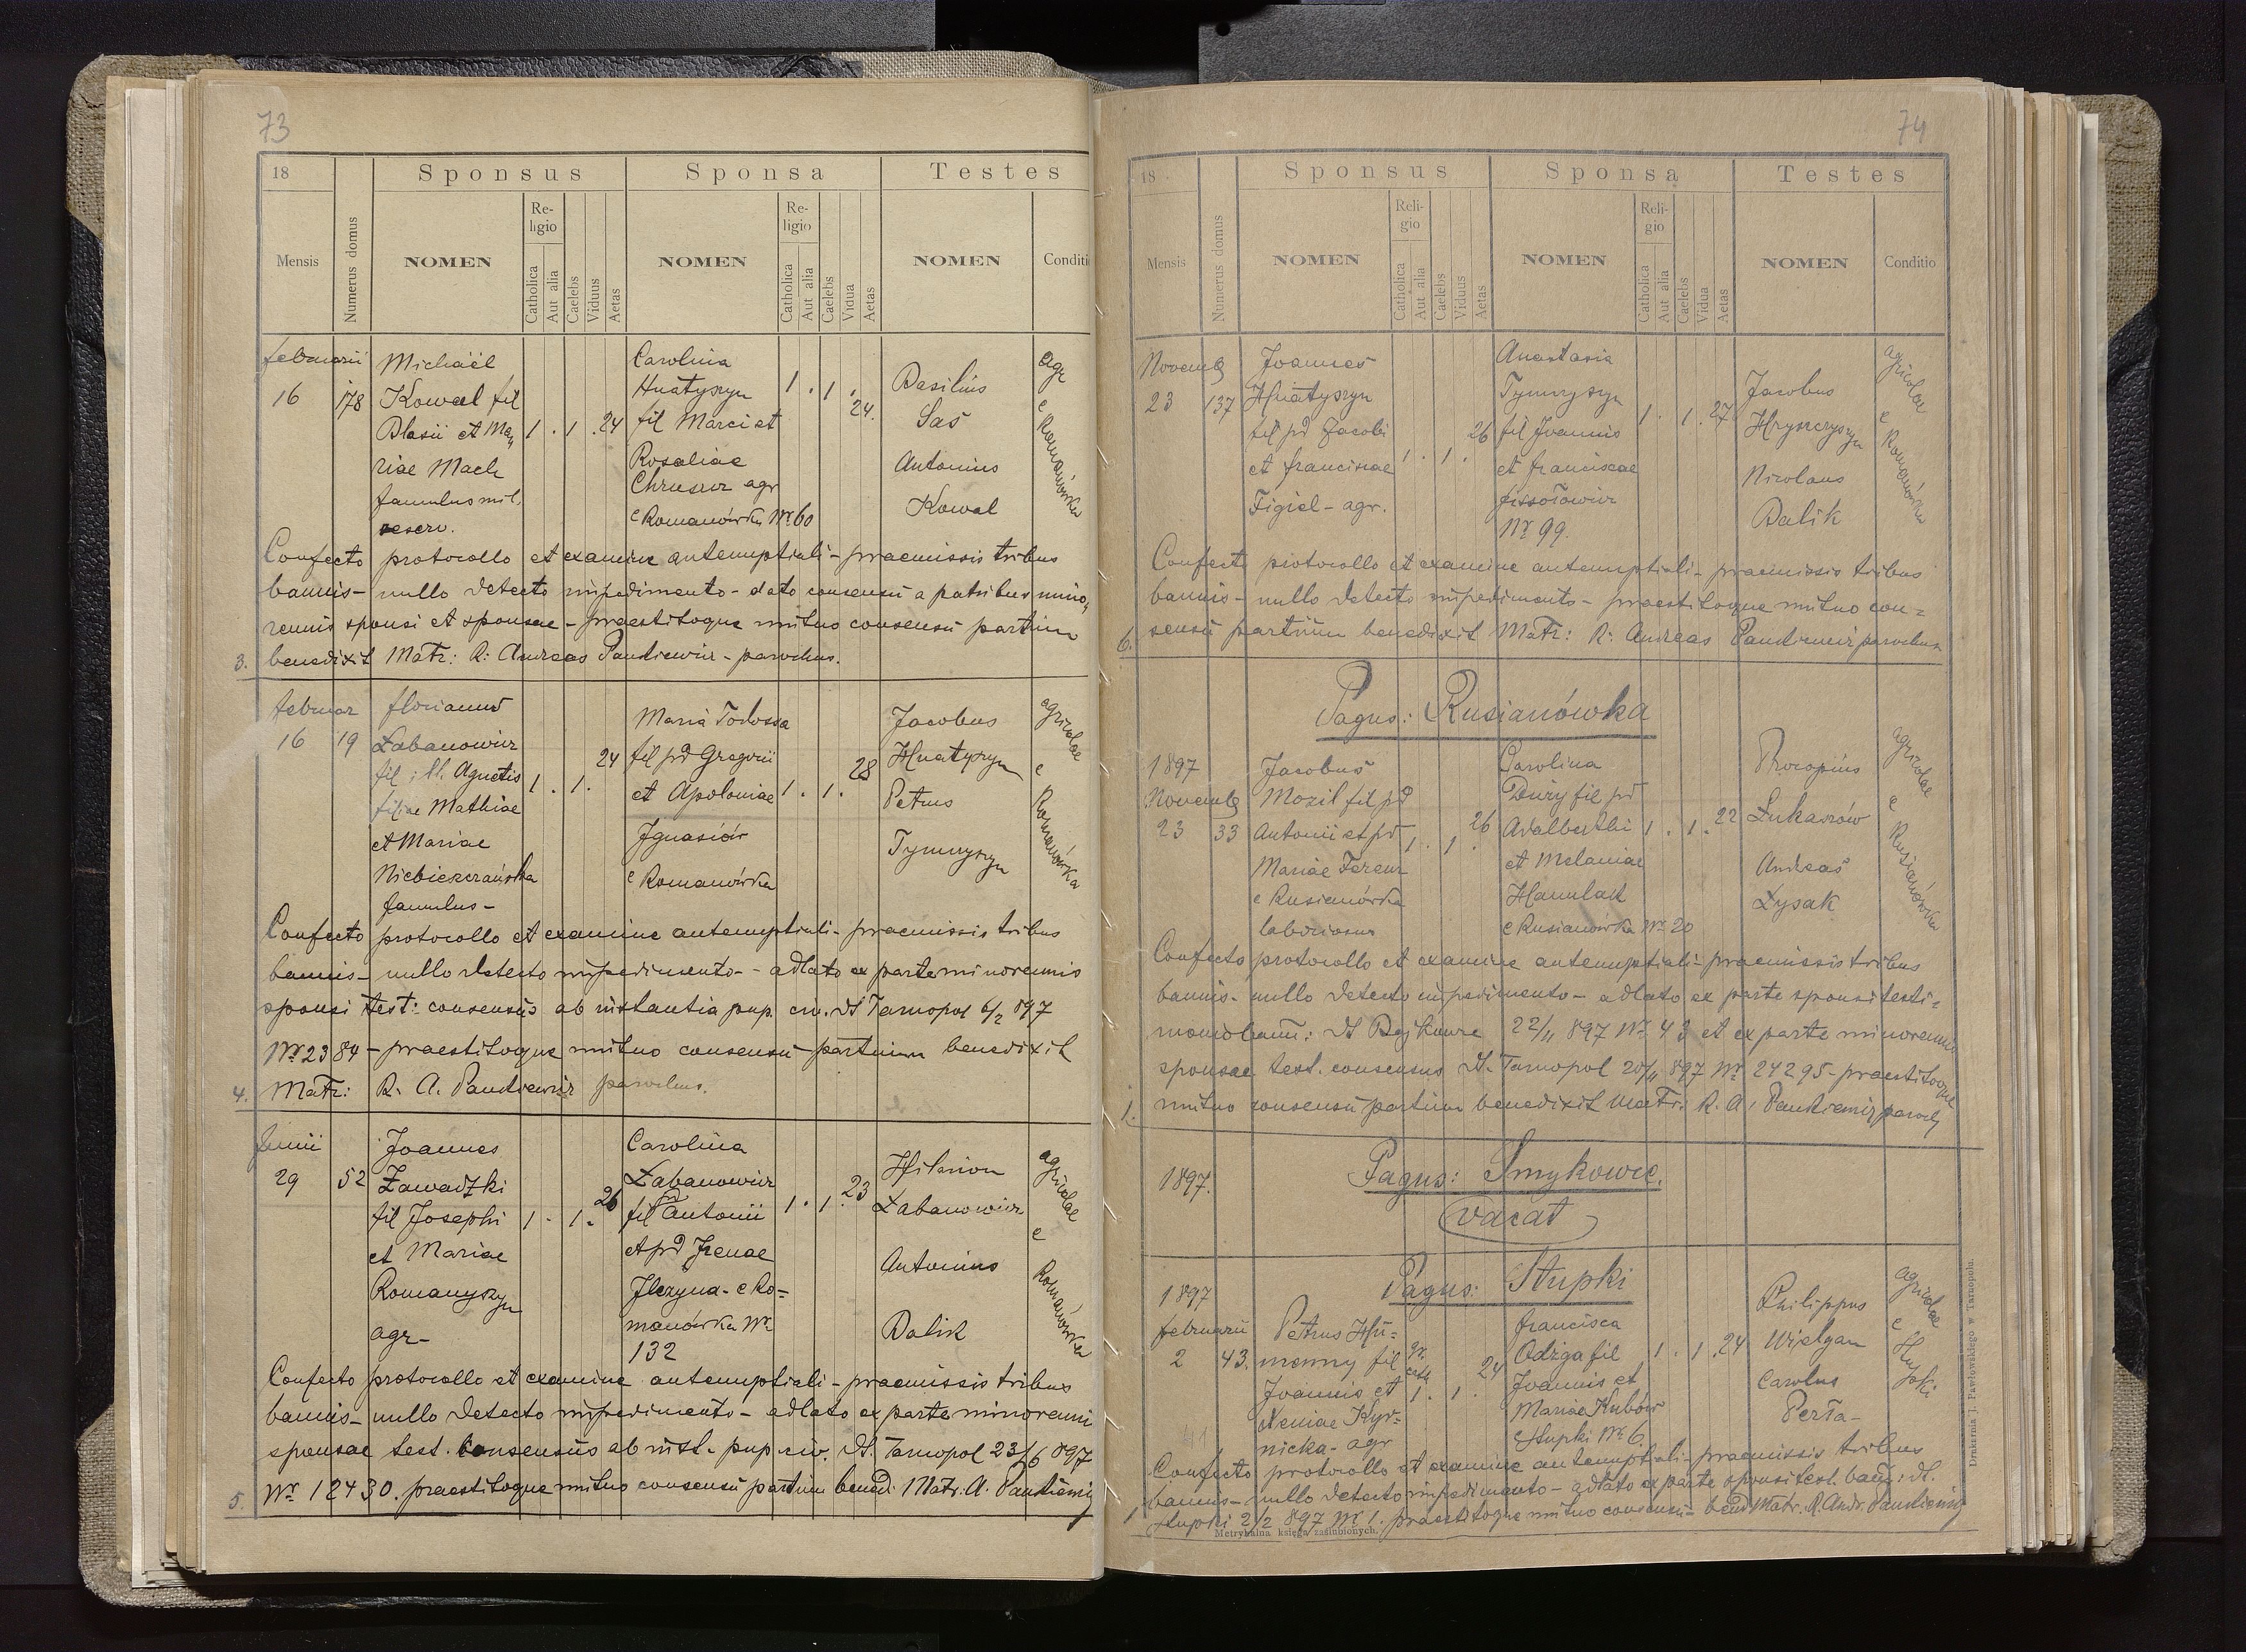 73
18
Sponsus
Sponsa
Testes
Mensis
Numerus domus
NOMEN
Re-
ligio
Catholica
Aut alia
Caelebs
Viduus
Aetas
NOMEN
Re-
ligio
Catholica
Aut alia
Caelebs
Vidua
Aetas
NOMEN
Conditi
februarii
16
178
Michaël
Kowal fil
Blasii et Ma„
riae Mach
famulus mil.
reserv.
1 . 1 . 24
Carolina
Hnatyszyn
fil Marci et
Rosaliae
Chruszcz agr
e Romanówka Nr 60
1 . 1 . 24.
Basilius
Sas
Antonius
Kowal
agr
e
Romanówka
Confecto protocollo et examine antenuptiali - praemissis tribus
bannis - nullo detecto impedimento - dato consensu a patribus mino„
rennis sponsi et sponsae - praestitoque mutuo consensu partium
3. benedixit Matr: R: Andreas Pankiewicz - parochus.
februar
16
19
florianus
Łabanowicz
fil ill. Agnetis
filiae Mathiae
et Mariae
Niebieszczańska
famulus -
1 . 1 . 24
Maria Todossa
fil pd Gregorii
et Apoloniae
Ignasiów
e Romanówka
1 . 1 . 28
Jacobus
Hnatyszyn
Petrus
Tymczyszyn
agricolae
e
Romanówka
Confecto protocollo et examine antenuptiali - praemissis tribus
bannis - nullo detecto impedimento - adlato ex parte minorennis
sponsi test: consensûs ab instantia pup. civ. dt Tarnopol 6/2 897
Nr 2384 - praestitoque mutuo consensu partium benedixit
4. Matr: R. A. Pankiewicz parochus.
Junii
29
52
Joannes
Zawadzki
fil Josephi
et Mariae
Romanyszyn
agr -
1 . 1 . 26
Carolina
Łabanowicz
fil Antonii
et pd Irenae
Ilczyna - e Ro=
manówka Nr
132
1 . 1 . 23
Hilarion
Łabanowicz
Antonius
Balik
agricolae
e
Romanówka
Confecto protocollo et examine antenuptiali - praemissis tribus
bannis - nullo detecto impedimento - adlato ex parte minorenni
sponsae test. consensûs ab inst. pup. civ. dt. Tarnopol 23/6 897
5. Nr 12430. praestitoque mutuo consensu partium bened. Matr. A. Pankiewicz
74
18
Sponsus
Sponsa
Testes
Mensis
Numerus domus
NOMEN
Reli-
gio
Catholica
Aut alia
Caelebs
Viduus
Aetas
NOMEN
Reli-
gio
Catholica
Aut alia
Caelebs
Vidua
Aetas
NOMEN
Conditio
Novemb
23
137
Joannes
Hnatyszyn
fil pd Jacobi
et franciscae
Figiel - agr.
1 . 1 . 26
Anastasia
Tymczyszyn
fil Joannis
et franciscae
Nr 99.
1 . 1 . 27
Jacobus
Hryszczyszyn
Nicolaus
Balik
agricolae
e
Romanówka
Confecto protocollo et examine antenuptiali - praemissis tribus
bannis - nullo detecto impedimento - praestitoque mutuo con=
6. sensu partium benedixit Matr: R: Andreas Pankiewicz parochus
Pagus: Rusianówka
1897
Novemb
23
33
Jacobus
Mozil fil pd
Antonii et pd
Mariae Ferenz
e Rusianówka
laboriosus
1 . 1 . 26
Carolina
Dury fil pd
Adalberthi
et Melaniae
Hamulak
e Rusianówka Nr 20
1 . 1 . 22
Procopius
Łukaszów
Andreas
Łysak
agricolae
e
Rusianówka
Confecto protocollo et examine antenuptiali - praemissis tribus
bannis - nullo detecto impedimento - adlato ex parte sponsi testi=
monio bann: dt Bojkowce 22/11 897 Nr 43 et ex parte minorennis
sponsae test. consensus dt. Tarnopol 20/11 897 Nr 24295 - praestitoque
1. mutuo consensu partium benedixit Matr. R. A. Pankiewicz paroch
1897.
Pagus: Smykowce.
vacat
Pagus: Stupki
1897
februarii
2
43.
Petrus Hu=
menny fil
Joannis et
Xeniae Kyr=
nicka - agr
gr.
cath
1 . 1 . 24
francisca
Odżga fil
Joannis et
Mariae Kubów
e Stupki Nr 6
1 . 1 . 24
Philippus
Wielgan
Carolus
Perła -
agricolae
e
Stupki
Confecto protocollo et examine antenuptiali - praemissis tribus
bannis - nullo detecto impedimento - adlato ex parte sponsi test. bann: dt.
1 Stupki 2/2 897 Nr 1. praestitoque mutuo consensu - bened Matr. R. Andr. Pankiewicz
Metrykalna księga zaślubionych.
Drukarnia J. Pawłowskiego w Tarnopolu.